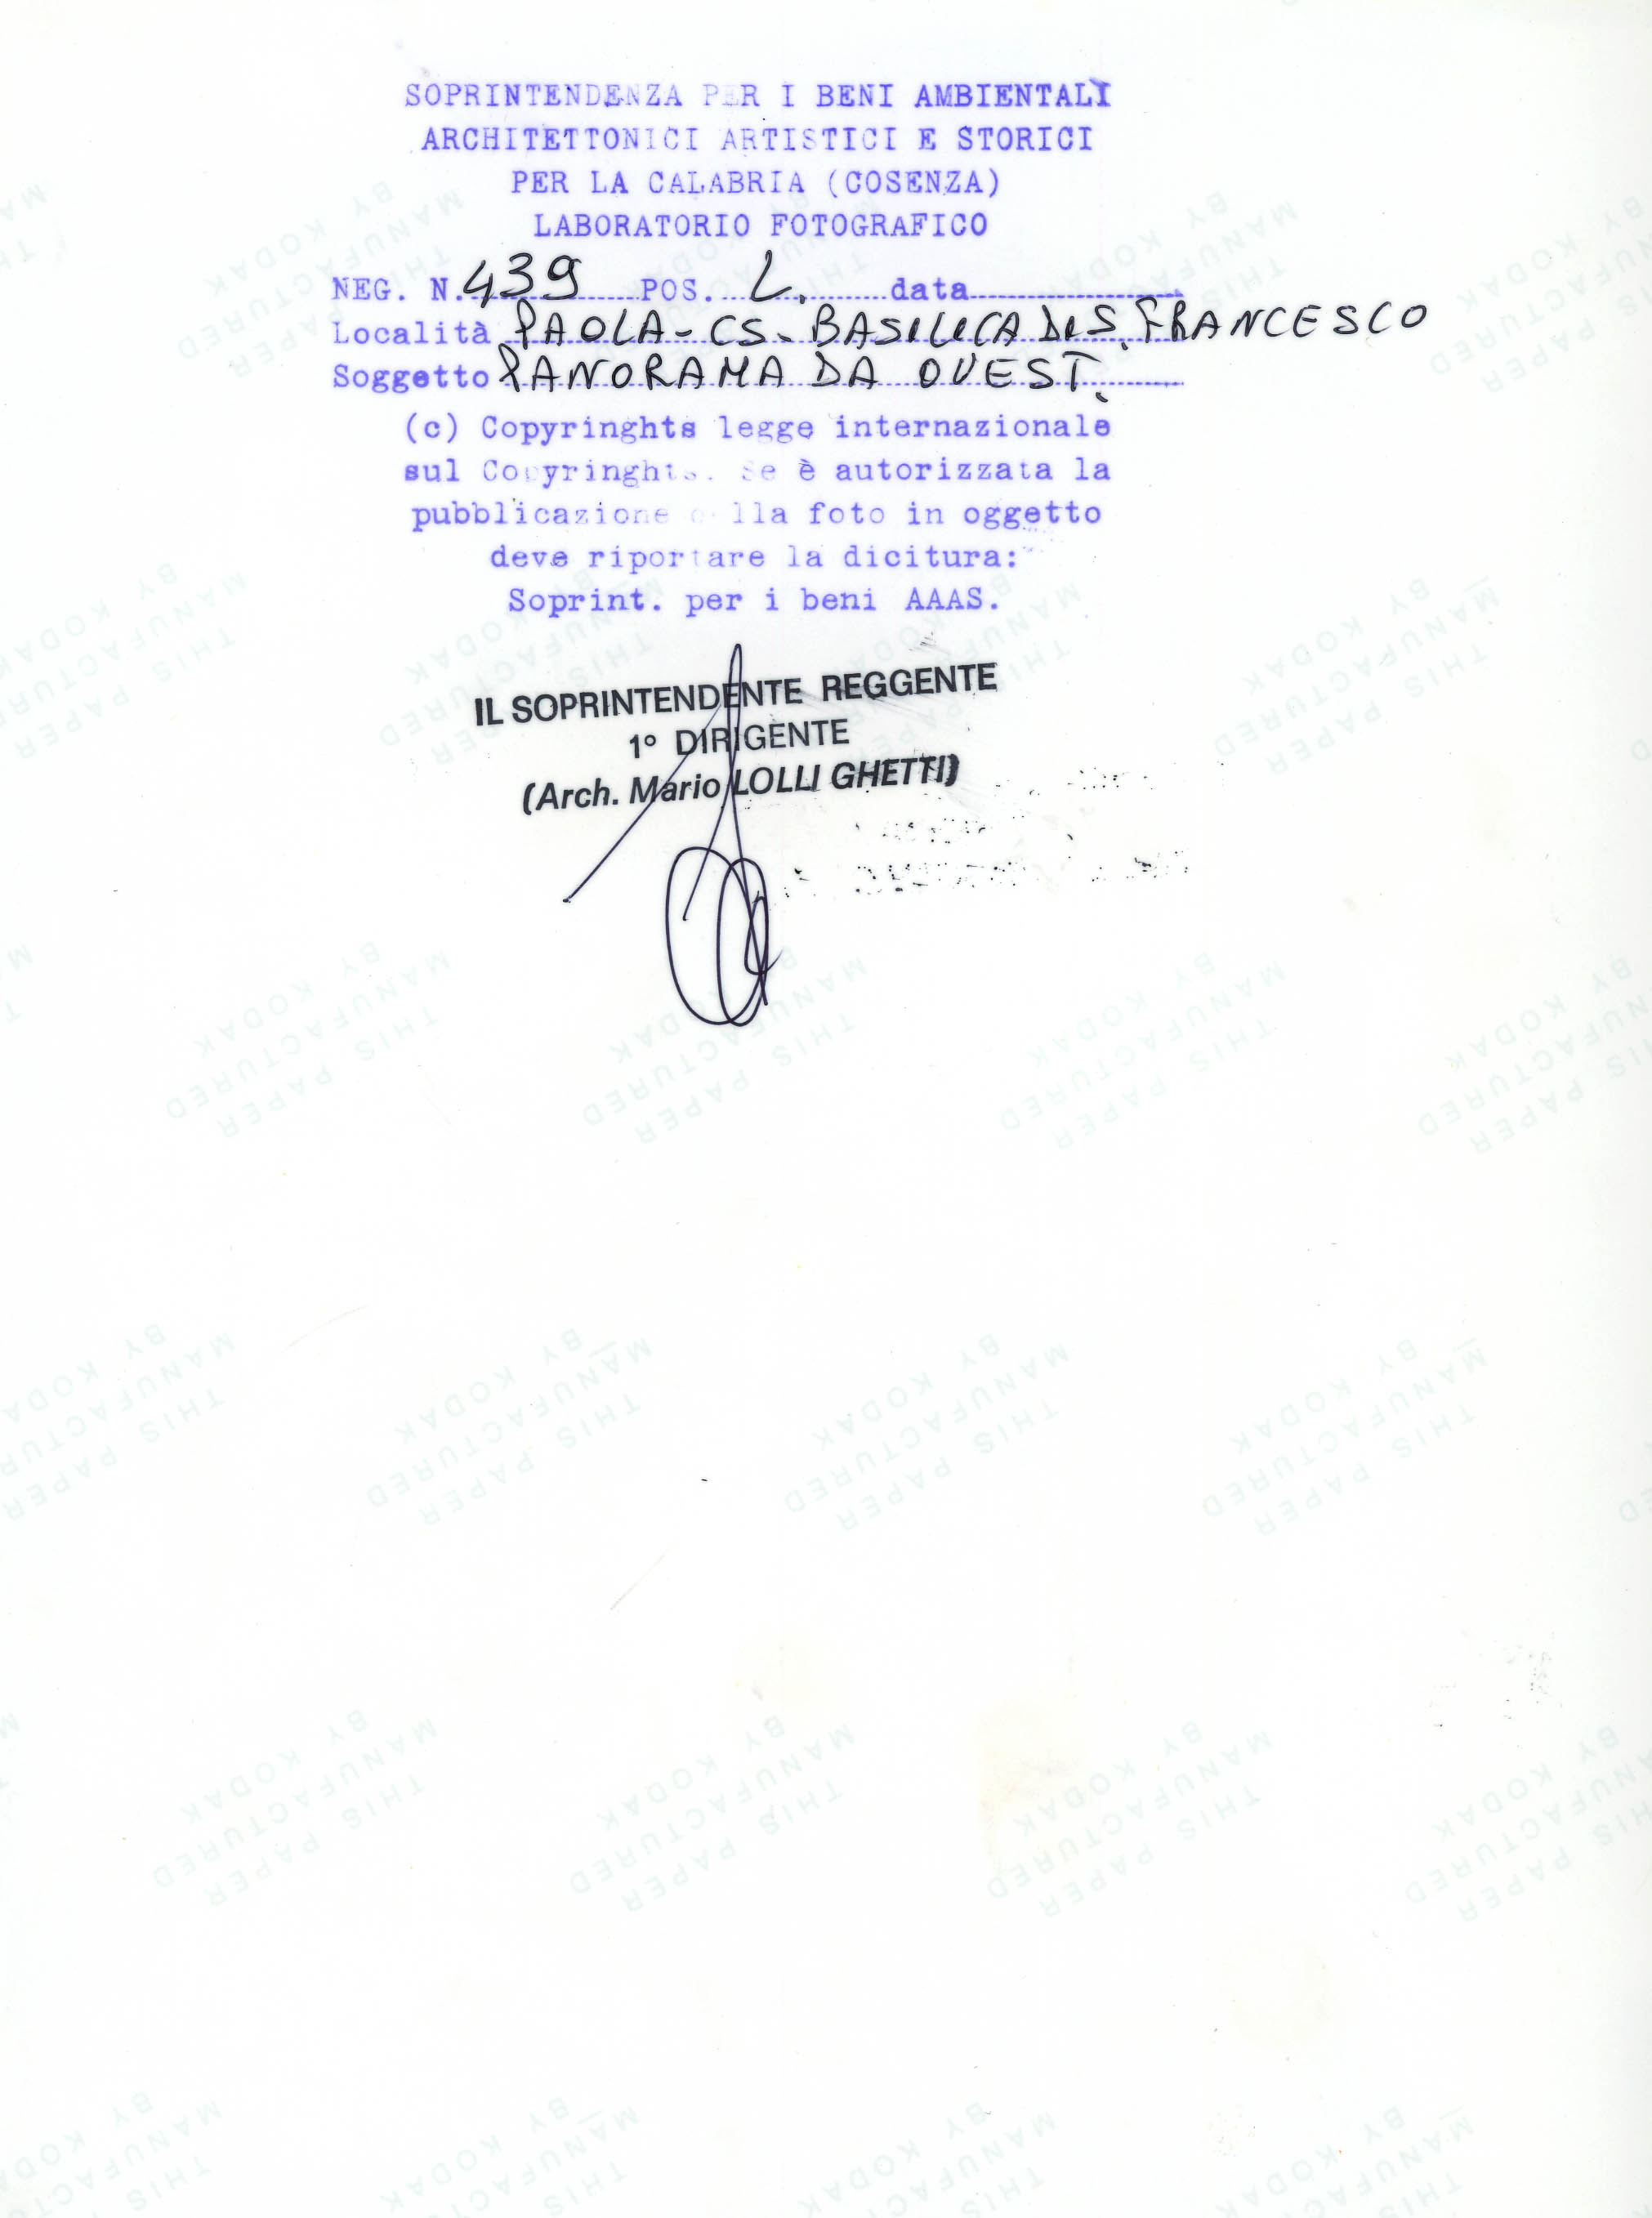 SOPRINTENDENZA PER I BENI AMBIENTALI
ARCHITETTONICI ARTISTICI E STORICI
PER LA CALABRIA (COSENZA)
LABORATORIO FOTOGRAFICO
NEG. N. 439 POS. L. data
Località PAOLA - CS - BASILICA DI S. FRANCESCO
Soggetto PANORAMA DA OVEST.
(c) Copyringhts legge internazionale
sul Copyringhts. Se è autorizzata la
pubblicazione della foto in oggetto
deve riportare la dicitura:
Soprint. per i beni AAAS.
IL SOPRINTENDENTE REGGENTE
1° DIRIGENTE
(Arch. Mario LOLLI GHETTI)
THIS PAPER
MANUFACTURED
BY KODAK